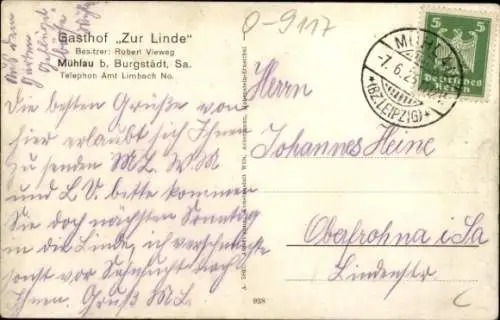 Q-9117
Gasthof „Zur Linde"
Besitzer: Robert Vieweg
Mühlau b, Burgstädt, Sa.
Telephon Amt Limbach No.
Die besten Grüße von
hier erlaubt sich Ihnen
zu senden ML. W.M
und L V. bitte kommen
Sie doch nächsten Sonntag
in die Linde, ich verschmachte
sonst vor Sehnsucht nach
Ihnen. Gruß ML.
Herrn
Johannes Heine
Oberfrohna i. Sa
Lindenstr.
5 5
Deutsches
Reich
-7.6.25
*(BZ.LEIPZIG)*
928